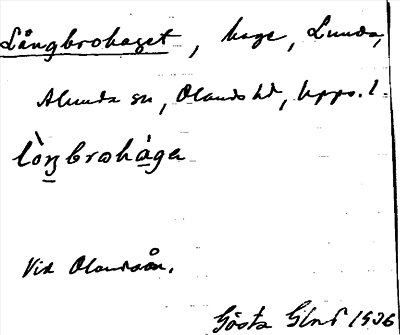 Långbrohaget, hage, Lunda,
Alunda sn, Olands hd, Upps. l.
lòŋbrohága
Vid Olandsån.
Gösta 1936